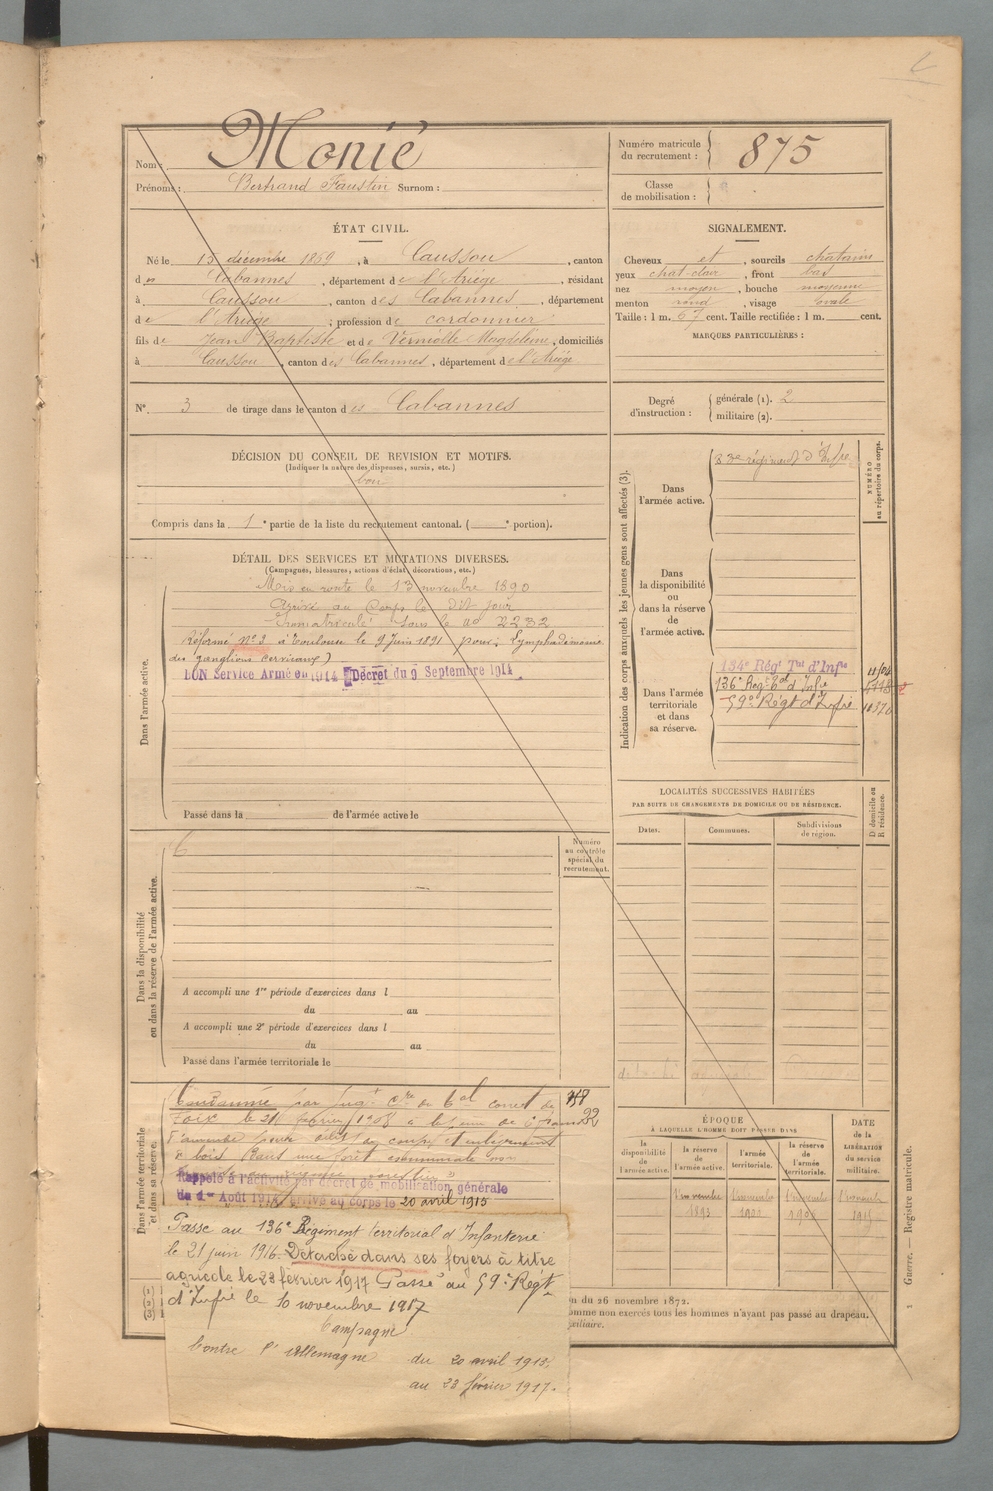 Nom : Monié
Prénoms : Bertrand Faustin Surnom :
Numéro matricule du recrutement : 875
Classe de mobilisation :
ÉTAT CIVIL.
Né le 15 décembre 1869, à Caussou, canton
d es Cabannes, département de l'Ariége, résidant
à Caussou, canton des Cabannes, département
de l'Ariége, profession de cordonnier
fils de Jean Baptiste et de Verniolle Magdeleine, domiciliés
à Caussou, canton des Cabannes, département de l'Ariége
SIGNALEMENT.
Cheveux et, sourcils chatains
yeux chat-clair, front bas
nez moyen, bouche moyenne
menton rond, visage ovale
Taille : 1 m. 67 cent. Taille rectifiée : 1 m. cent.
MARQUES PARTICULIÈRES :
N° 3 de tirage dans le canton des Cabannes
Degré d'instruction :
générale (1). 2
militaire (2).
DÉCISION DU CONSEIL DE REVISION ET MOTIFS.
(Indiquer la nature des dispenses, sursis, etc.)
bon
Compris dans la 1e partie de la liste du recrutement cantonal. ( e portion).
DÉTAIL DES SERVICES ET MUTATIONS DIVERSES.
(Campagnes, blessures, actions d'éclat, décorations, etc.)
Dans l'armée active.
Mis en route le 13 novembre 1890
Arrivé au Corps le dit jour
Immatriculé sous le n° 2232
Réformé n° 2 à Toulouse le 9 Juin 1891 pour : Lymphadénome
des ganglions cervicaux)
BON Service Armé en 1914 Décret du 9 Septembre 1914
Passé dans la de l'armée active le
Indication des corps auxquels les jeunes gens sont affectés (3).
NUMÉRO au répertoire du corps.
Dans l'armée active.
régiment d'Infie
Dans la disponibilité ou dans la réserve de l'armée active.
Dans l'armée territoriale et dans sa réserve.
134e Régt Tal d'Infie
136e Régt Tal d'Infie
59e Régt d'Infie
LOCALITÉS SUCCESSIVES HABITÉES
PAR SUITE DE CHANGEMENTS DE DOMICILE OU DE RÉSIDENCE.
Dates. Communes. Subdivisions de région. D domicile ou R résidence.
Dans la disponibilité ou dans la réserve de l'armée active.
Numéro au contrôle spécial du recrutement.
A accompli une 1re période d'exercices dans l
du au
A accompli une 2e période d'exercices dans l
du au
Passé dans l'armée territoriale le
Dans l'armée territoriale et dans sa réserve.
Condamné par Jugt de Tal correl de
Foix le février 1908 à la peine de francs
d'amende pour délit de coupe et enlèvement
de bois dans une forêt communale
Rappelé à l'activité par décret de mobilisation générale
du 1er Août 1914 arrivé au corps le 20 avril 1915
Passé au 136e Régiment territorial d'Infanterie
le 21 juin 1916. Détaché dans ses foyers à titre
agricole le 23 février 1917 Passé au 59e Régt
d'Infie le 10 novembre 1917
Campagne
Contre l'Allemagne du 20 avril 1915
au 23 février 1917.
ÉPOQUE
À LAQUELLE L'HOMME DOIT PASSER DANS
la disponibilité de l'armée active.
la réserve de l'armée active.
l'armée territoriale.
la réserve de l'armée territoriale.
DATE de la LIBÉRATION du service militaire.
1893
n du 26 novembre 1872.
omme non exercés tous les hommes n'ayant pas passé au drapeau.
xiliaire.
(1)
(2)
(3)
Guerre. — Registre matricule.